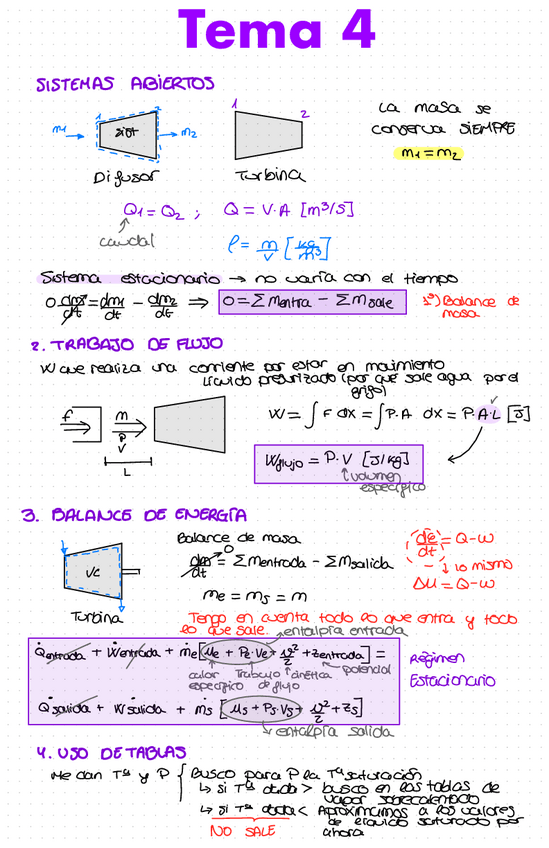 Tema 4
SISTEMAS ABIERTOS
1 2
m1 sist m2
1 2
Difusor
Turbina
La masa se
conserva SIEMPRE
m1 = m2
Q1 = Q2 ; Q = V·A [m³/s]
caudal
ρ = m/V [kg/m³]
Sistema estacionario → no varía con el tiempo
0 dms/dt = dm1/dt - dm2/dt ⇒ 0 = Σ mentra - Σ msale
1º) Balance de
masa
2. TRABAJO DE FLUJO
W que realiza una corriente por estar en movimiento
Líquido presurizado (por qué sale agua por el
grifo)
F m P V L
W = ∫ F dx = ∫ P·A dx = P·A·L [J]
Wflujo = P·V [J/kg]
volumen
específico
3. BALANCE DE ENERGÍA
VC
Turbina
Balance de masa
dm/dt 0 = Σ mentrada - Σ msalida
me = ms = m
dE/dt = Q-W
lo mismo
ΔU = Q-W
Tengo en cuenta todo lo que entra y todo
lo que sale.
entalpía entrada
Q̇entrada + Ẇentrada + ṁe [ue + Pe·Ve + v²/2 + zentrada] =
calor específico
Trabajo de flujo
cinética
potencial
Régimen
Estacionario
Q̇salida + Ẇsalida + ṁs [us + Ps·Vs + v²/2 + zs]
entalpía salida
4. USO DE TABLAS
Me dan Tª y P { Busco para P la Tª saturación
↳ si Tª dada > busco en las tablas de
vapor sobrecalentado
↳ si Tª dada < Aproximamos a los valores
de líquido saturado por
ahora
NO SALE